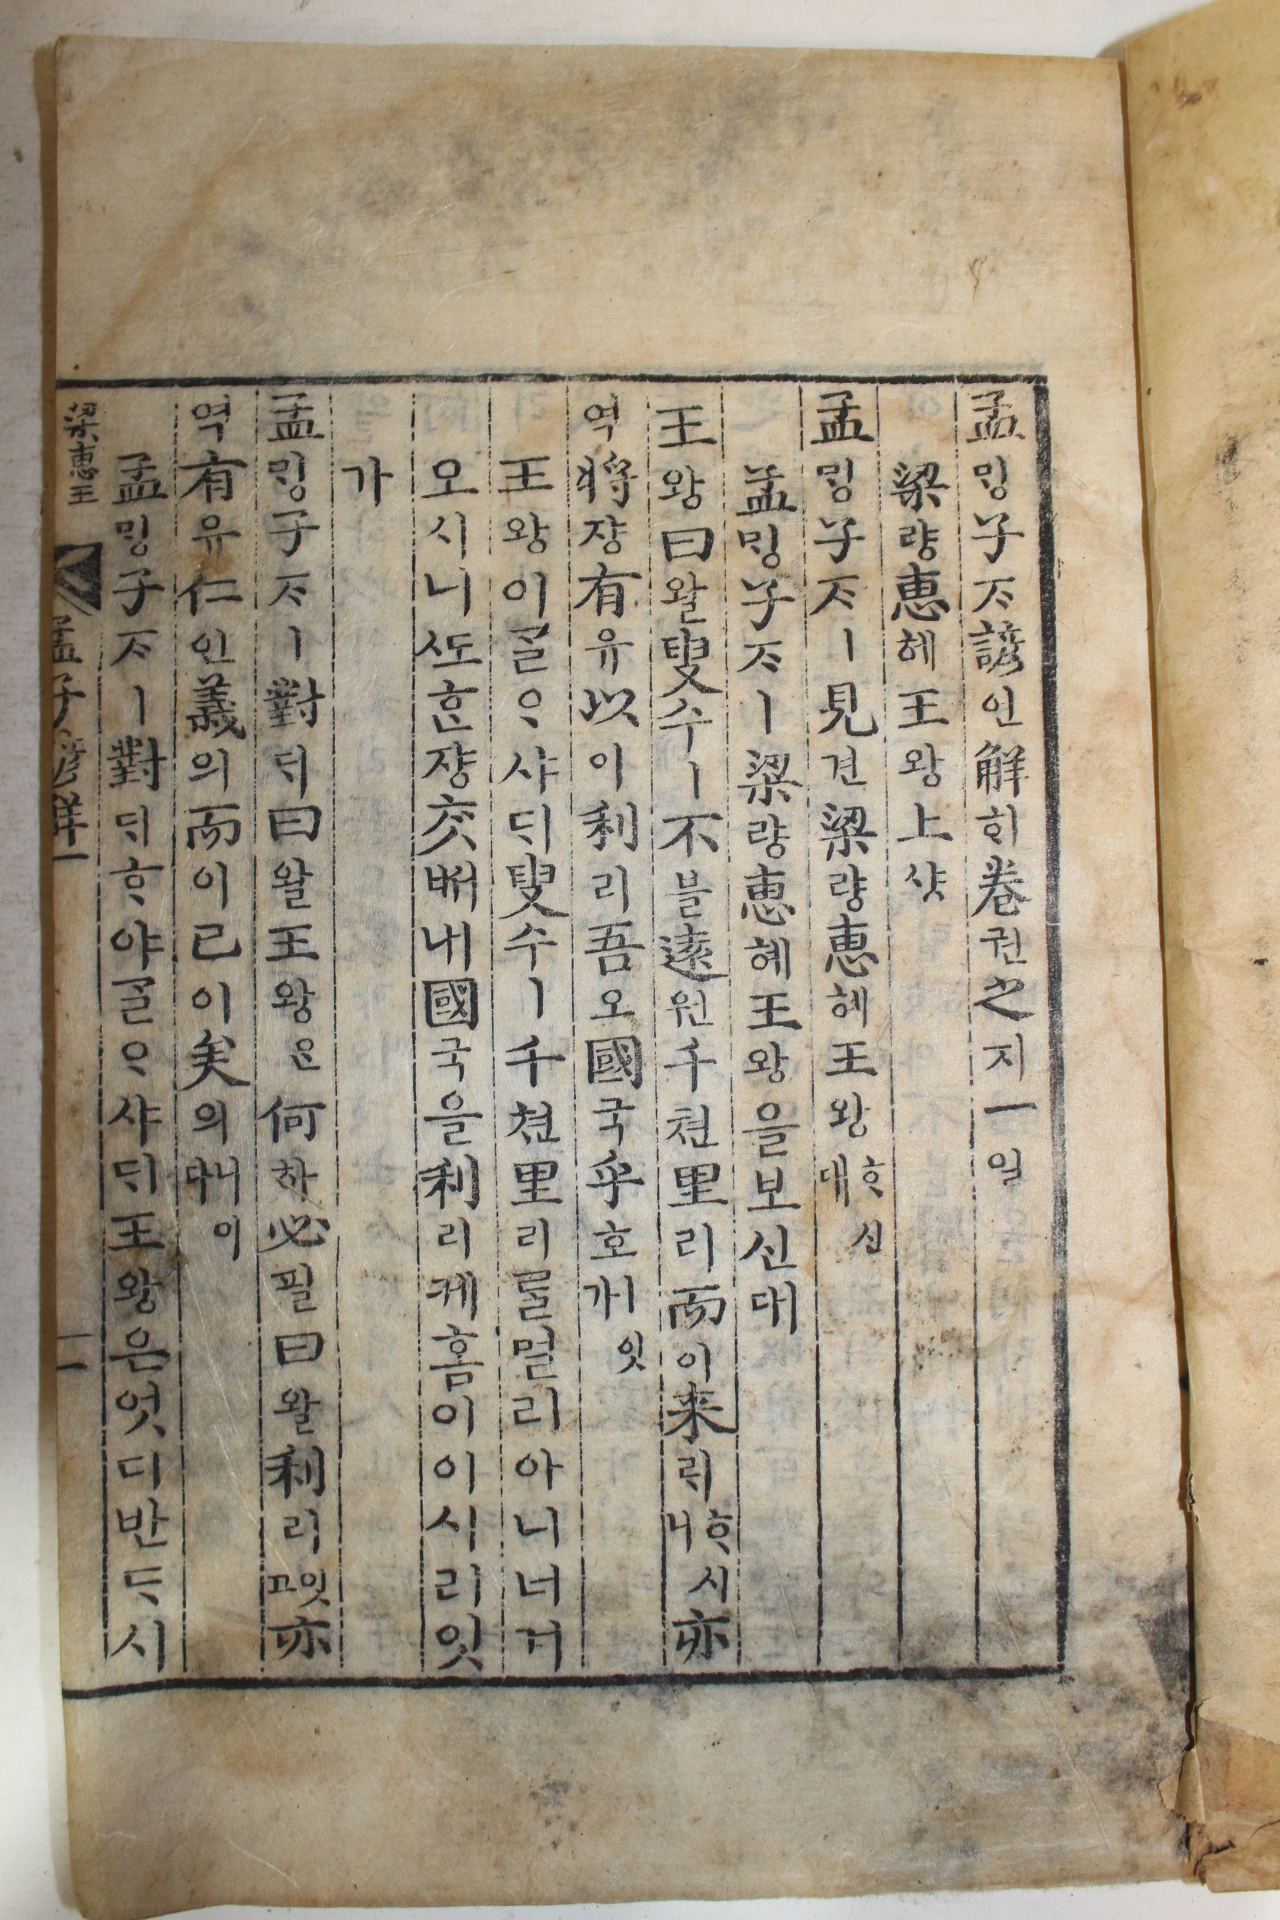 孟ᄆᆡᆼ子ᄌᆞ諺언解ᄒᆡ卷권之지一일
梁량惠혜王왕上샹
孟ᄆᆡᆼ子ᄌᆞㅣ見견梁량惠혜王왕ᄒᆞ신대
孟ᄆᆡᆼ子ᄌᆞㅣ梁량惠혜王왕을보신대
王왕曰왈叟수ㅣ不블遠원千쳔里리而이来ᄅᆡᄒᆞ시니亦
역將쟝有유以이利리吾오國국乎호잇가
王왕이ᄀᆞᆯᄋᆞ샤ᄃᆡ叟수ㅣ千쳔里리ᄅᆞᆯ멀리아니너겨
오시니ᄯᅩᄒᆞᆫ쟝ᄎᆞᆺᄡᅥ내國국을利리케홈이이시리잇
가
孟ᄆᆡᆼ子ᄌᆞㅣ對ᄃᆡ曰왈王왕은何하必필曰왈利리잇고亦
역有유仁인義의而이已이矣의니이다
孟ᄆᆡᆼ子ᄌᆞㅣ對ᄃᆡᄒᆞ야ᄀᆞᆯᄋᆞ샤ᄃᆡ王왕은엇디반ᄃᆞ시
梁惠王 孟子諺解一 一